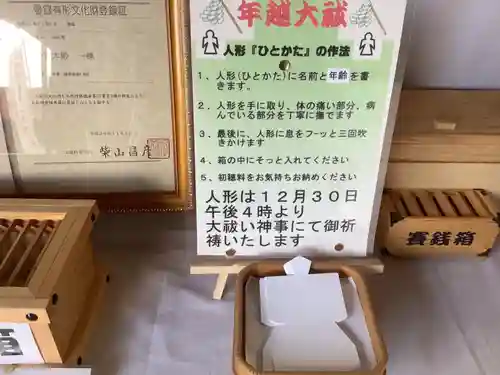 登録有形文化財登録証
年越大祓
人形『ひとかた』の作法
1、人形(ひとかた)に名前と年齢を書
きます。
2、人形を手に取り、体の痛い部分、病
んでいる部分を丁寧に撫でます
3、最後に、人形に息をフーッと三回吹
きかけます
4、箱の中にそっと入れてください
5、初穂料をお気持ちお納めください
人形は12月30日
午後4時より
大祓い神事にて御祈
祷いたします
賽銭箱